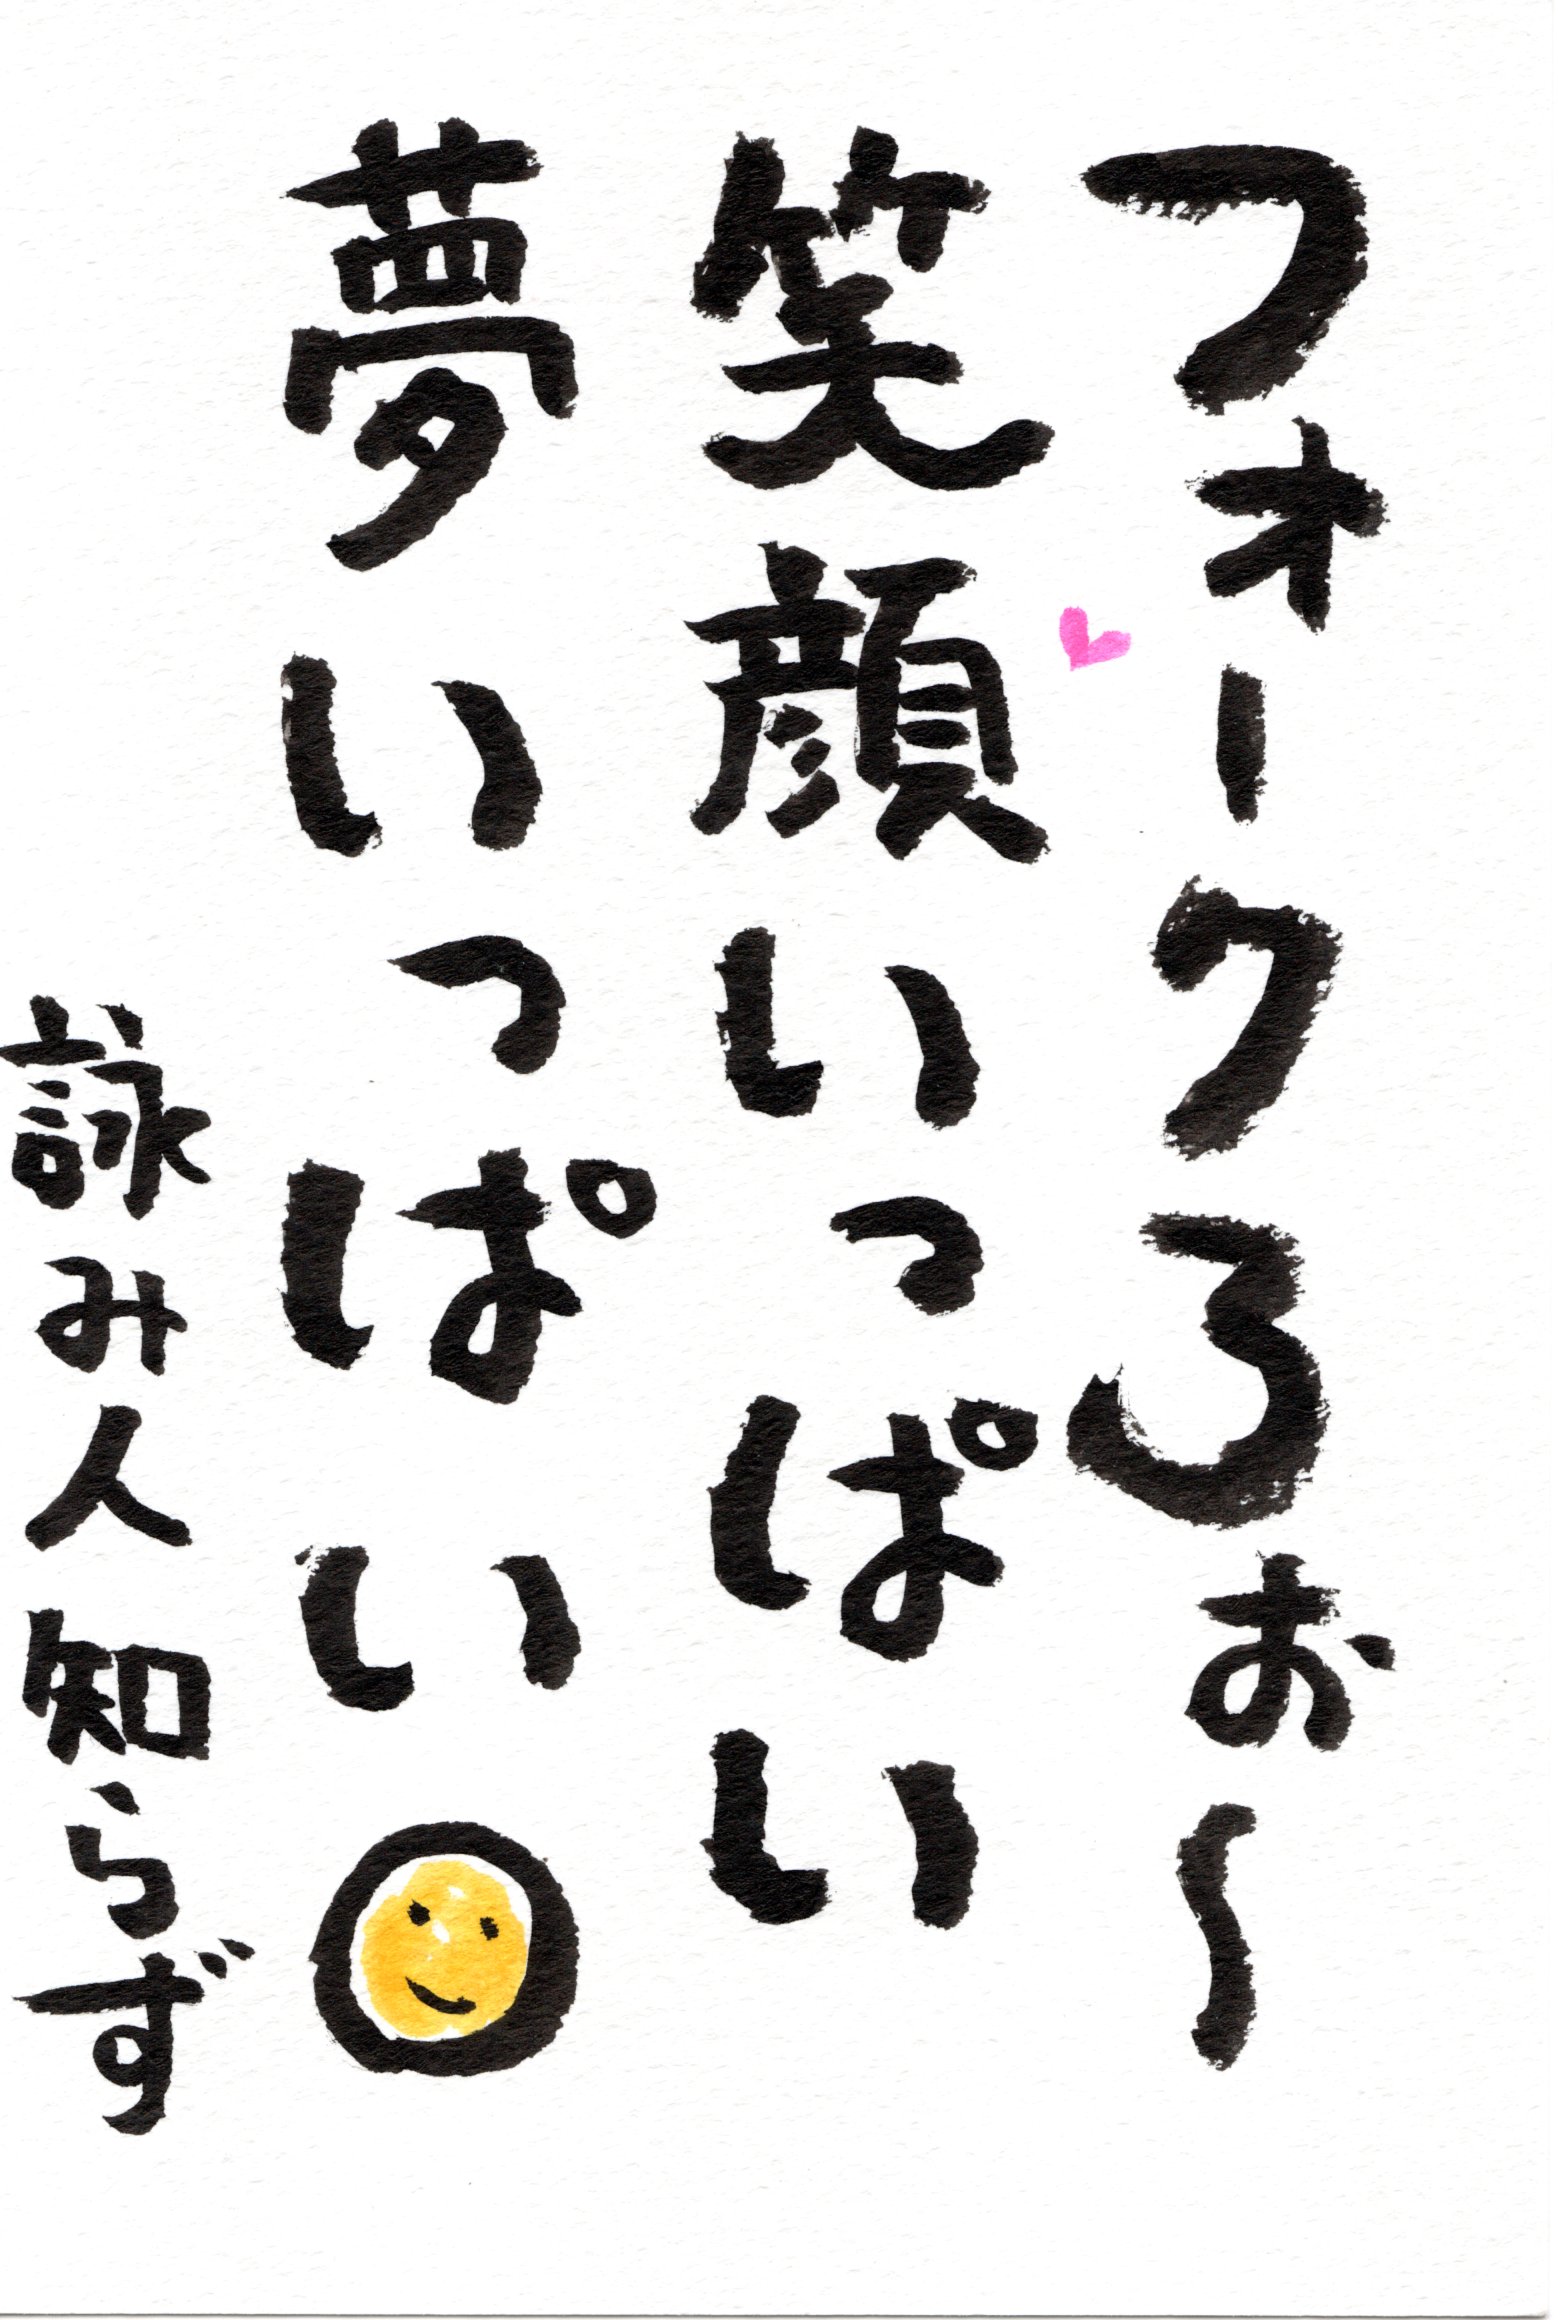 フォークろぉ〜
笑顔いっぱい
夢いっぱい
詠み人知らず